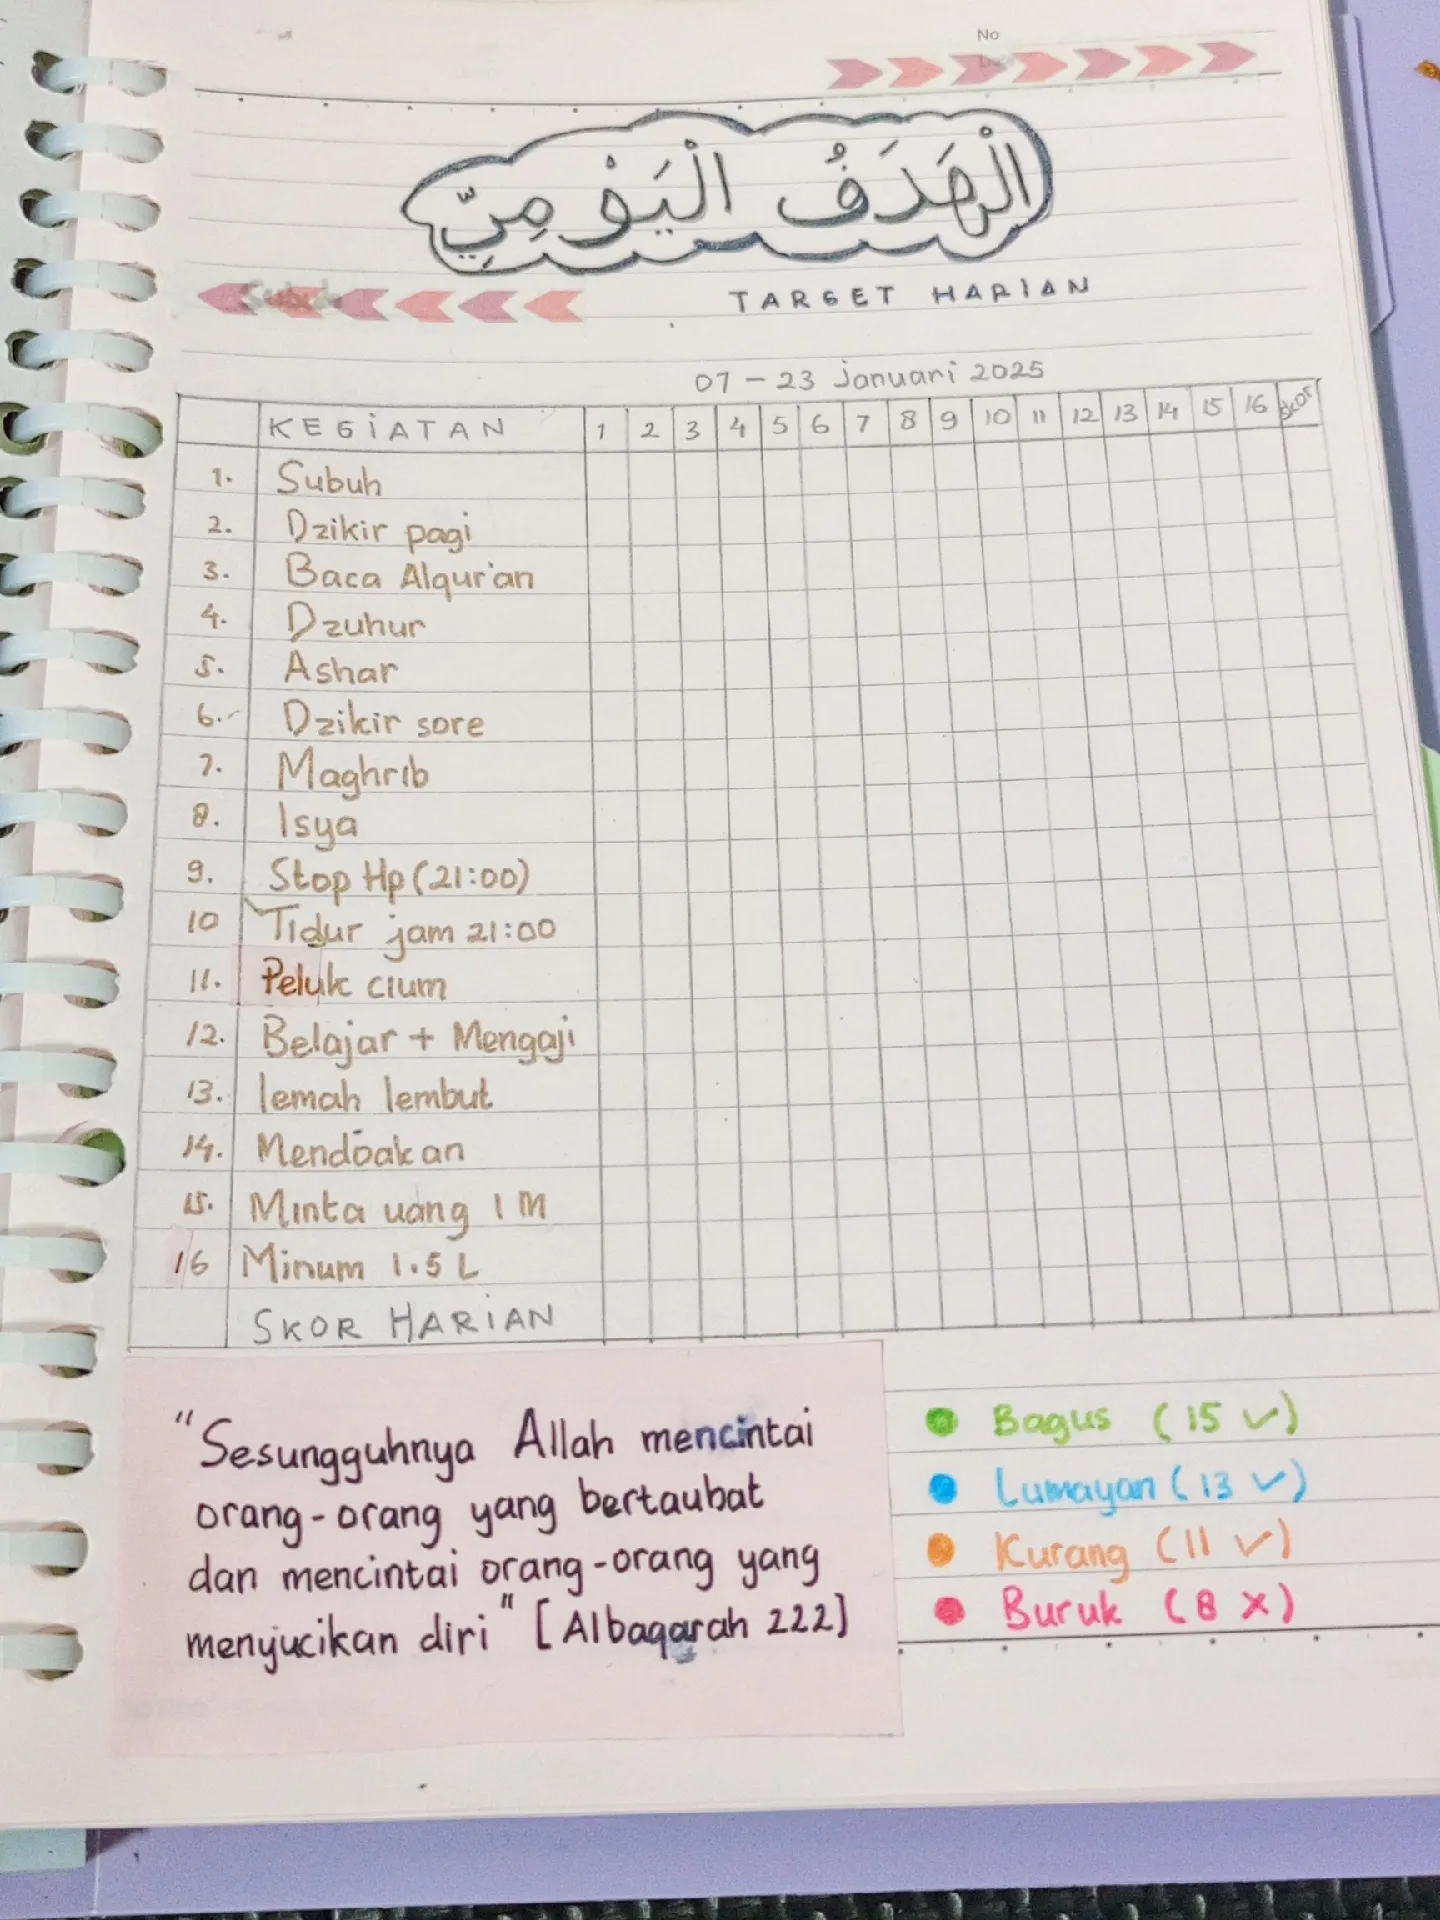 No
الْهَدَفُ الْيَوْمِيِّ
TARGET HARIAN
07 - 23 Januari 2025
KEGiATAN 1 2 3 4 5 6 7 8 9 10 11 12 13 14 15 16 Skor
1. Subuh
2. Dzikir pagi
3. Baca Alqur'an
4. Dzuhur
5. Ashar
6. Dzikir sore
7. Maghrib
8. Isya
9. Stop Hp (21:00)
10 Tidur jam 21:00
11. Peluk cium
12. Belajar + Mengaji
13. lemah lembut
14. Mendoakan
15. Minta uang 1 M
16 Minum 1.5 L
SKOR HARiAN
"Sesungguhnya Allah mencintai
orang-orang yang bertaubat
dan mencintai orang-orang yang
menyucikan diri" [Albaqarah 222]
Bagus (15 ✓)
Lumayan (13 ✓)
Kurang (11 ✓)
Buruk (8 ×)